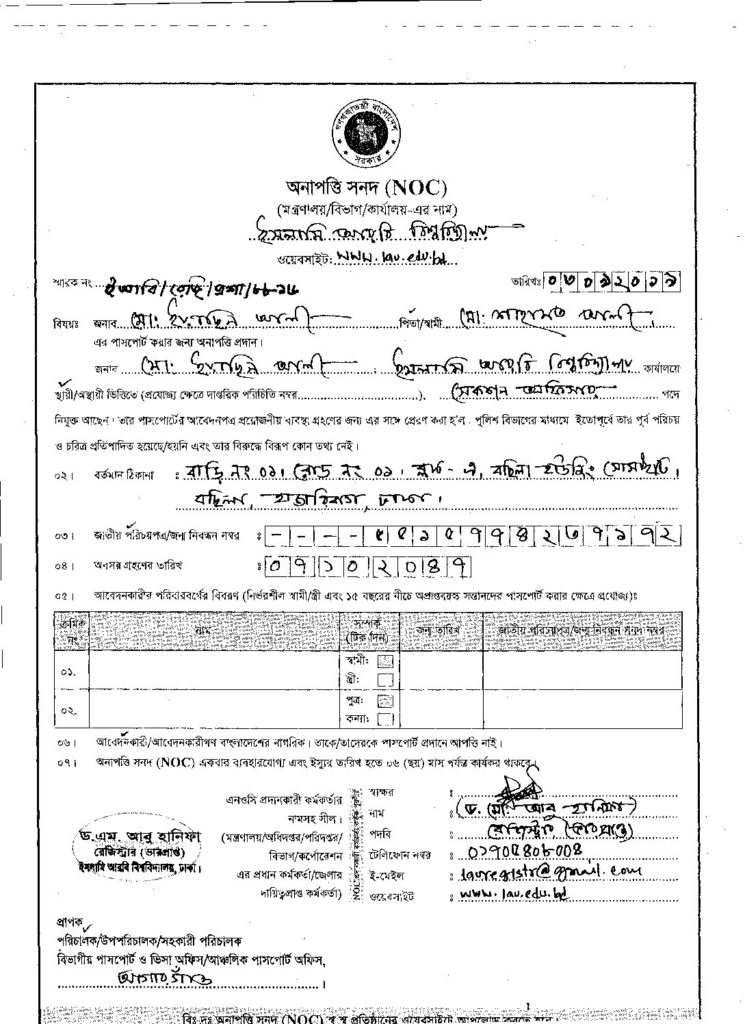 গণপ্রজাতন্ত্রী বাংলাদেশ
সরকার
অনাপত্তি সনদ (NOC)
(মন্ত্রণালয়/বিভাগ/কার্যালয়-এর নাম)
ইসলামি আরবি বিশ্ববিদ্যালয়
ওয়েবসাইট: www.iau.edu.bd
স্মারক নং ইআবি/রেজি/প্রশা/
তারিখঃ
বিষয়ঃ জনাব মো: আলী পিতা/স্বামী মো: আলী
এর পাসপোর্ট করার জন্য অনাপত্তি প্রদান।
জনাব মো: আলী ইসলামি আরবি বিশ্ববিদ্যালয় কার্যালয়ে
স্থায়ী/অস্থায়ী ভিত্তিতে (প্রযোজ্য ক্ষেত্রে দাপ্তরিক পরিচিতি নম্বর ), সেকশন অফিসার পদে
নিযুক্ত আছেন। তার পাসপোর্টের আবেদনপত্র প্রয়োজনীয় ব্যবস্থা গ্রহণের জন্য এর সঙ্গে প্রেরণ করা হ'ল। পুলিশ বিভাগের মাধ্যমে ইতোপূর্বে তার পূর্ব পরিচয়
ও চরিত্র প্রতিপাদিত হয়েছে/হয়নি এবং তার বিরুদ্ধে বিরূপ কোন তথ্য নেই।
০২। বর্তমান ঠিকানা : বাড়ি নং ০১। রোড নং ০১। ব্লক-এ, বছিলা হাউজিং সোসাইটি,
বছিলা, হাজারিবাগ, ঢাকা।
০৩। জাতীয় পরিচয়পত্র/জন্ম নিবন্ধন নম্বর : - - - - ৫৫১৫৭৭৪২৩৭১৭২
০৪। অবসর গ্রহণের তারিখ : ০৭১০২০৪৭
০৫। আবেদনকারীর পরিবারবর্গের বিবরণ (নির্ভরশীল স্বামী/স্ত্রী এবং ১৫ বছরের নীচে অপ্রাপ্তবয়স্ক সন্তানদের পাসপোর্ট করার ক্ষেত্রে প্রযোজ্য)ঃ
ক্রমিক নং নাম সম্পর্ক (টিক দিন) জন্ম তারিখ জাতীয় পরিচয়পত্র/জন্ম নিবন্ধন সনদ নম্বর
০১. স্বামী:
স্ত্রী:
০২. পুত্র:
কন্যা:
০৬। আবেদনকারী/আবেদনকারীগণ বাংলাদেশের নাগরিক। তাকে/তাদেরকে পাসপোর্ট প্রদানে আপত্তি নাই।
০৭। অনাপত্তি সনদ (NOC) একবার ব্যবহারযোগ্য এবং ইস্যুর তারিখ হতে ০৬ (ছয়) মাস পর্যন্ত কার্যকর থাকবে।
এনওসি প্রদানকারী কর্মকর্তার স্বাক্ষর :
নামসহ সীল। নাম : (ড. মো: আবু হানিফা)
(মন্ত্রণালয়/অধিদপ্তর/পরিদপ্তর/ পদবি : রেজিস্ট্রার (ভারপ্রাপ্ত)
বিভাগ/কর্পোরেশন টেলিফোন নম্বর :
এর প্রধান কর্মকর্তা/জেলার ই-মেইল : iauregistr@gmail.com
দায়িত্বপ্রাপ্ত কর্মকর্তা) ওয়েবসাইট : www.iau.edu.bd
ড.এম. আবু হানিফা
রেজিস্ট্রার (ভারপ্রাপ্ত)
ইসলামি আরবি বিশ্ববিদ্যালয়, ঢাকা।
প্রাপক
পরিচালক/উপপরিচালক/সহকারী পরিচালক
বিভাগীয় পাসপোর্ট ও ভিসা অফিস/আঞ্চলিক পাসপোর্ট অফিস,
আগারগাঁও ।
1
বিঃ দ্রঃ অনাপত্তি সনদ (NOC) স্ব স্ব প্রতিষ্ঠানের ওয়েবসাইটে আপলোড করতে হবে।